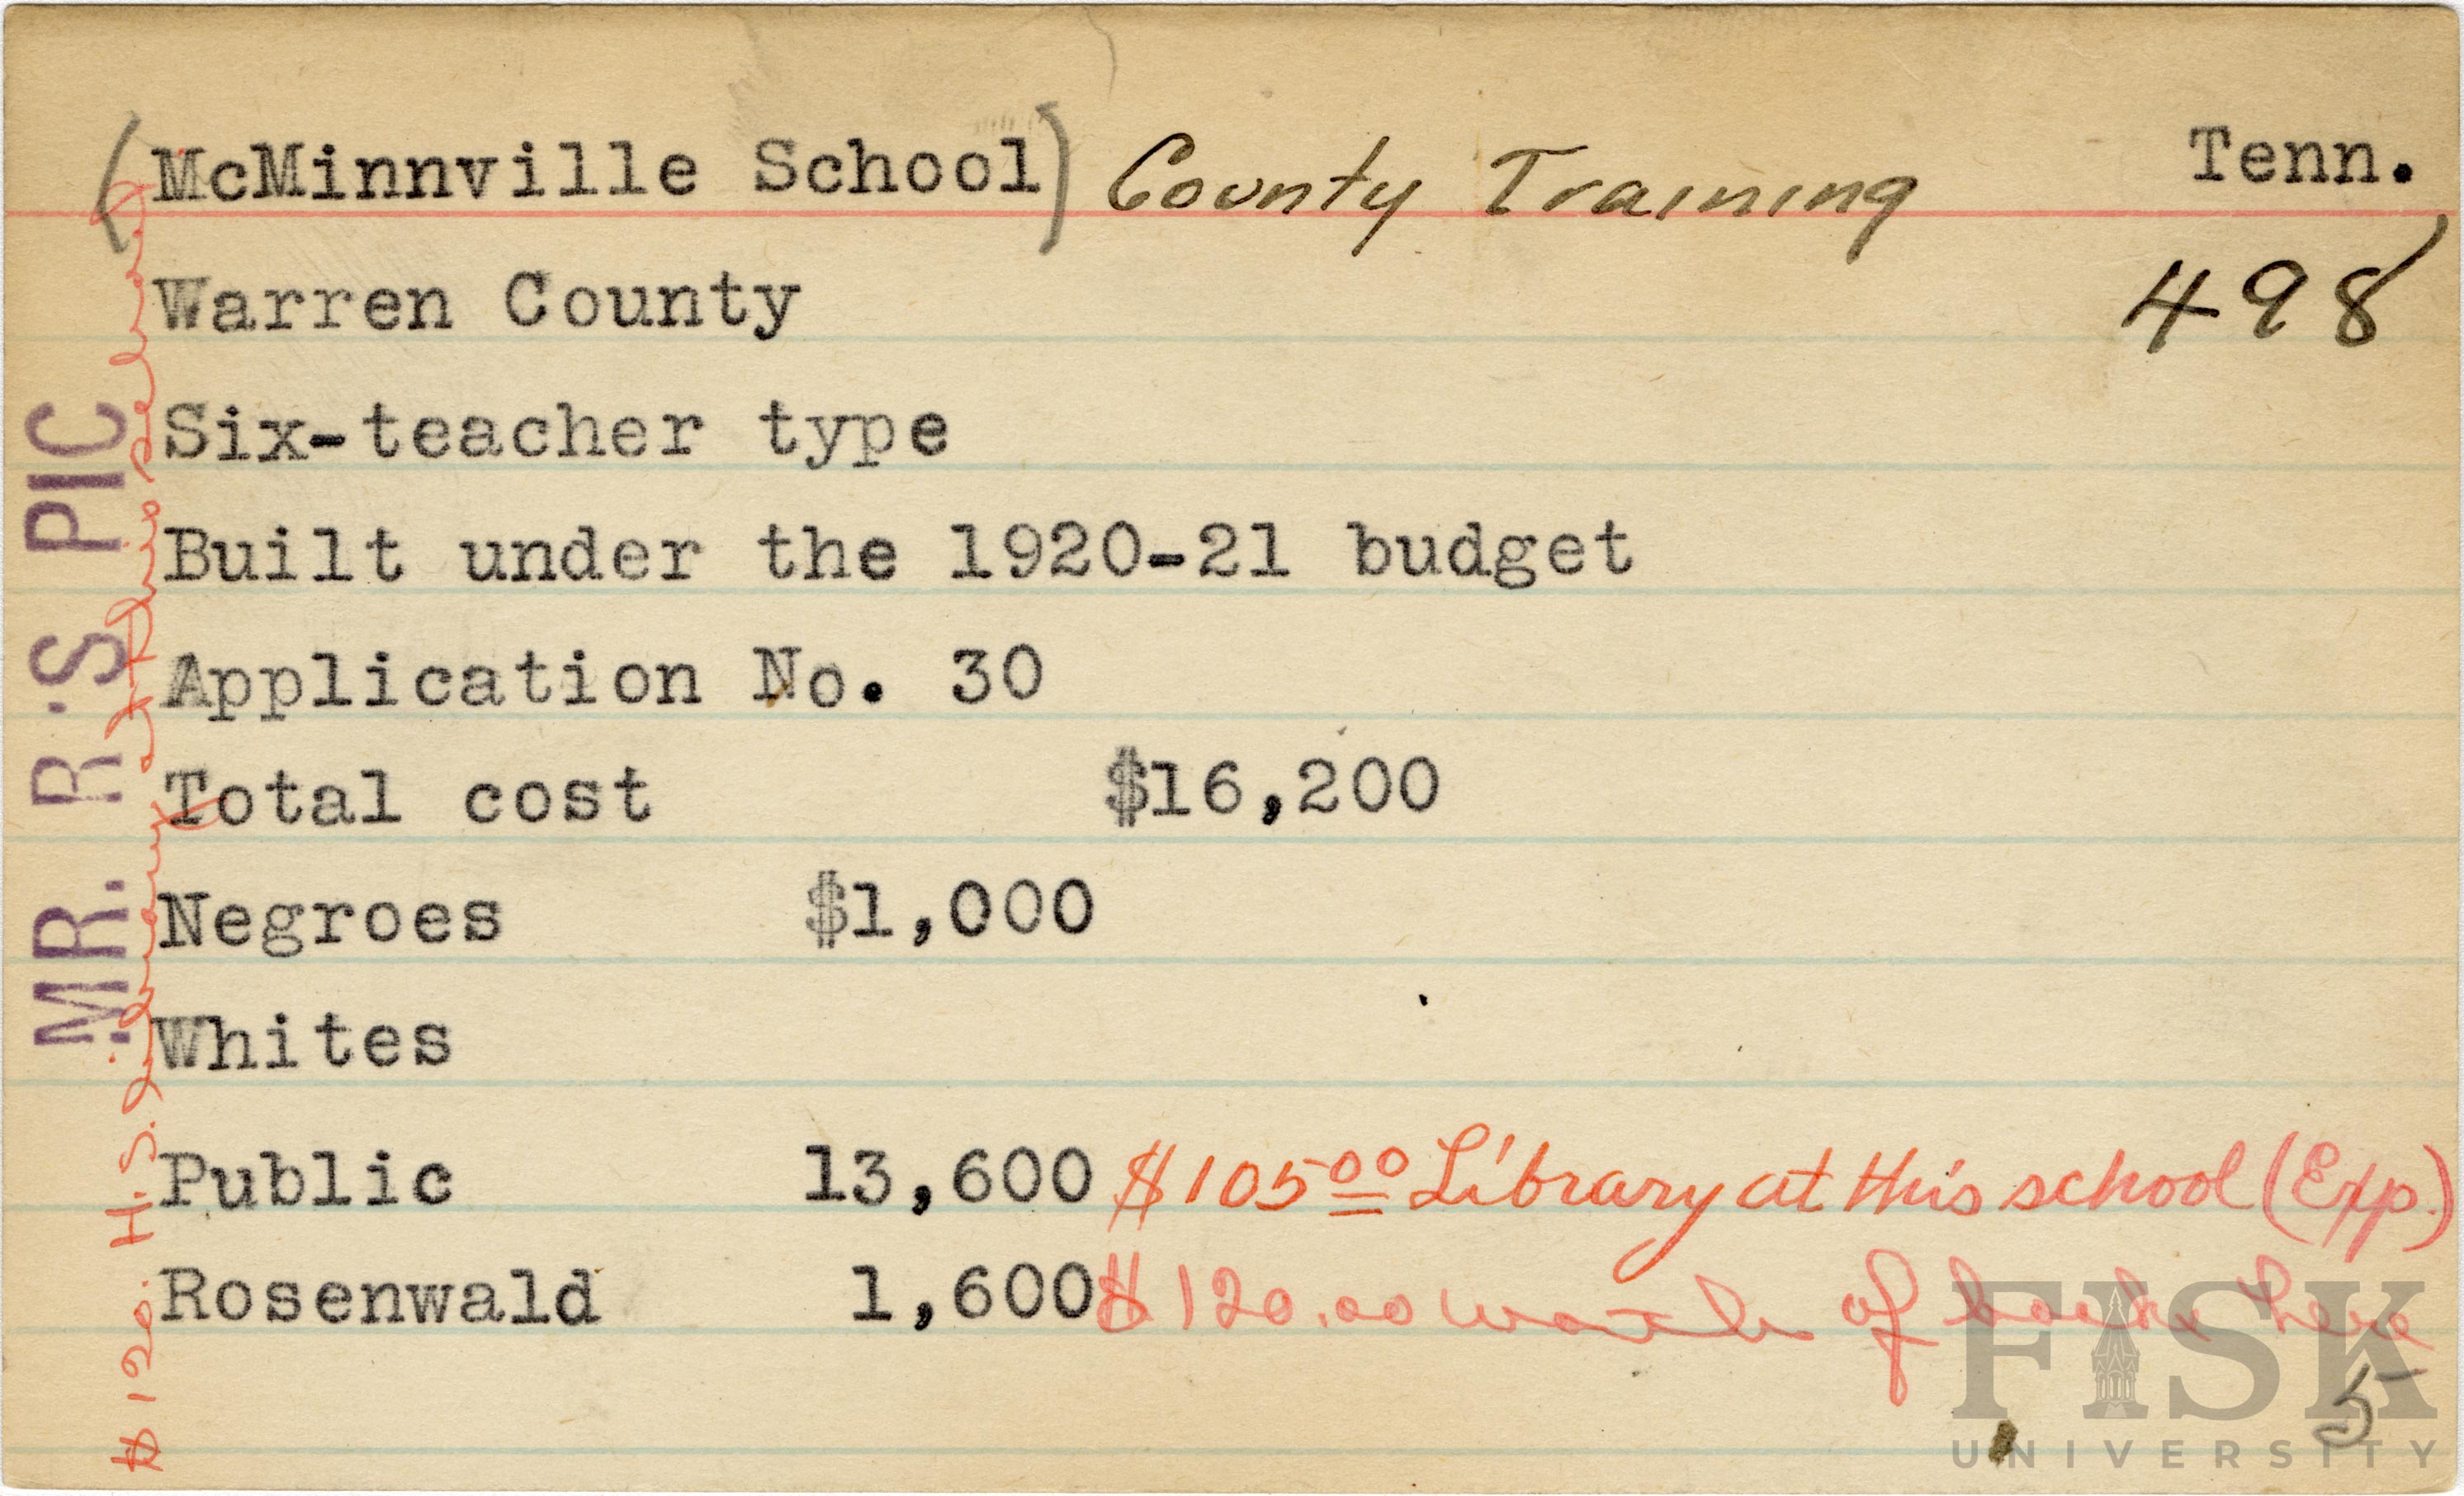 (McMinnville School) County Training Tenn.
Warren County 498
Six-teacher type
Built under the 1920-21 budget
Application No. 30
Total cost $16,200
Negroes $1,000
Whites
Public 13,600 $105.00 Library at this school (Exp.)
Rosenwald 1,600 $120.00 worth of books here
5
MR. R'S PIC
$120. H.S. Library at this school
FISK
UNIVERSITY